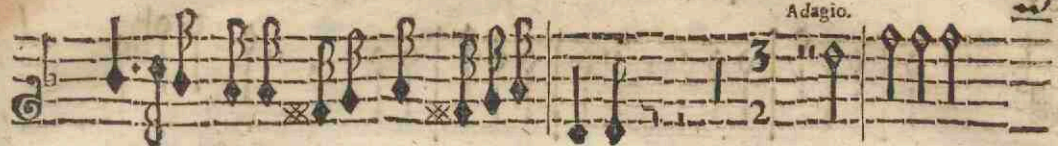 Adagio.
3
2